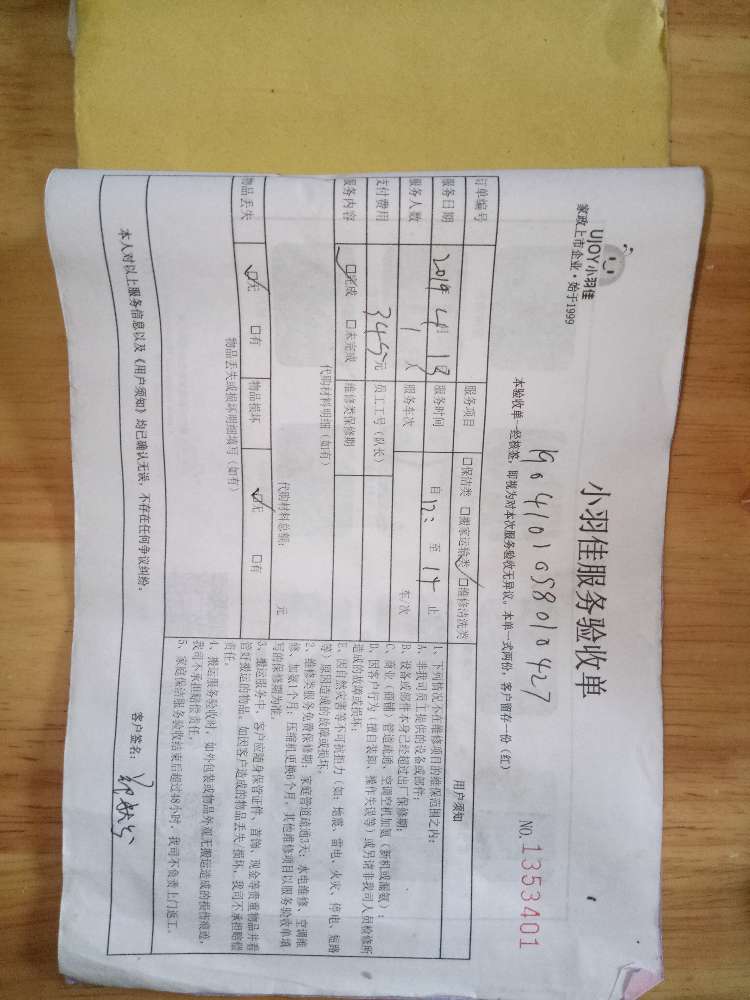 UJOY小羽佳
家政上市企业·始于1999
小羽佳服务验收单
NO.1353401
1904101058010427
本验收单一经核签，即视为对本次服务验收无异议。本单一式两份，客户留存一份（红）
订单编号 服务项目 □保洁类 □搬家运输类 □维修清洗类
服务日期 2019年4月1日 服务时间 自12: 至14 止
服务人数 1人 服务车次 车/次
支付费用 345元 员工工号（队长）
服务内容 □完成 □未完成 维修类保修期
代购材料明细（如有）
代购材料总额： 元
物品丢失 □无 □有 物品损坏 □无 □有
物品丢失或损坏明细填写（如有）
用户须知
1、下列情况不在维修项目的维保范围之内：
A、非我司员工提供的设备或部件；
B、设备或部件本身已经超过出厂保修期；
C、商业（商铺）管道疏通、空调空机加氨（新机或漏氨）；
D、因客户行为（擅自装卸、操作失误等）或另请非我司人员检修所
造成的故障或损坏；
E、因自然灾害等不可抗拒力（如：地震、雷电、火灾、停电、短路
等）原因造成的故障或损坏。
2、维修类服务免费保修期：家庭管道疏通3天；水电维修、空调维
修、加氨1个月；压缩机更换6个月，其他维修项目以服务验收单填
写的保修期为准。
3、搬运服务中，客户应随身保管证件、首饰、现金等贵重物品并看
管好搬运的物品。如因客户造成的物品丢失/损坏，我司不承担赔偿
责任。
4、搬运服务验收时，如外包装或物品外观无搬运造成的损伤痕迹，
我司不承担赔偿责任。
5、家庭保洁服务验收结束后超过48小时，我司不负责上门返工。
本人对以上服务信息以及《用户须知》均已确认无误，不存在任何争议纠纷。
客户签名：